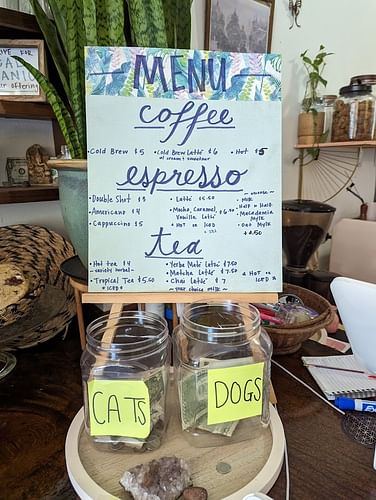 MENU
coffee
• Cold Brew $5 • Cold Brew Latte $6 • Hot $5
espresso
• Double Shot $3
• Americano $4
• Cappuccino $5
• Latte $5.50
• Mocha, Caramel, Vanilla Latte $6
• Hot or ICED
Milk
Half n Half
• Macadamia Mylk
• Oat Mylk
+ $1.50
tea
• Hot tea $4
~ variety herbal ~
• Tropical Tea $5.50
• ICED •
• Yerba Mate Latte $7.50
• Matcha Latte $7.50
• Chai Latte $7
~ your choice milk ~
HOT or ICED
CATS
DOGS